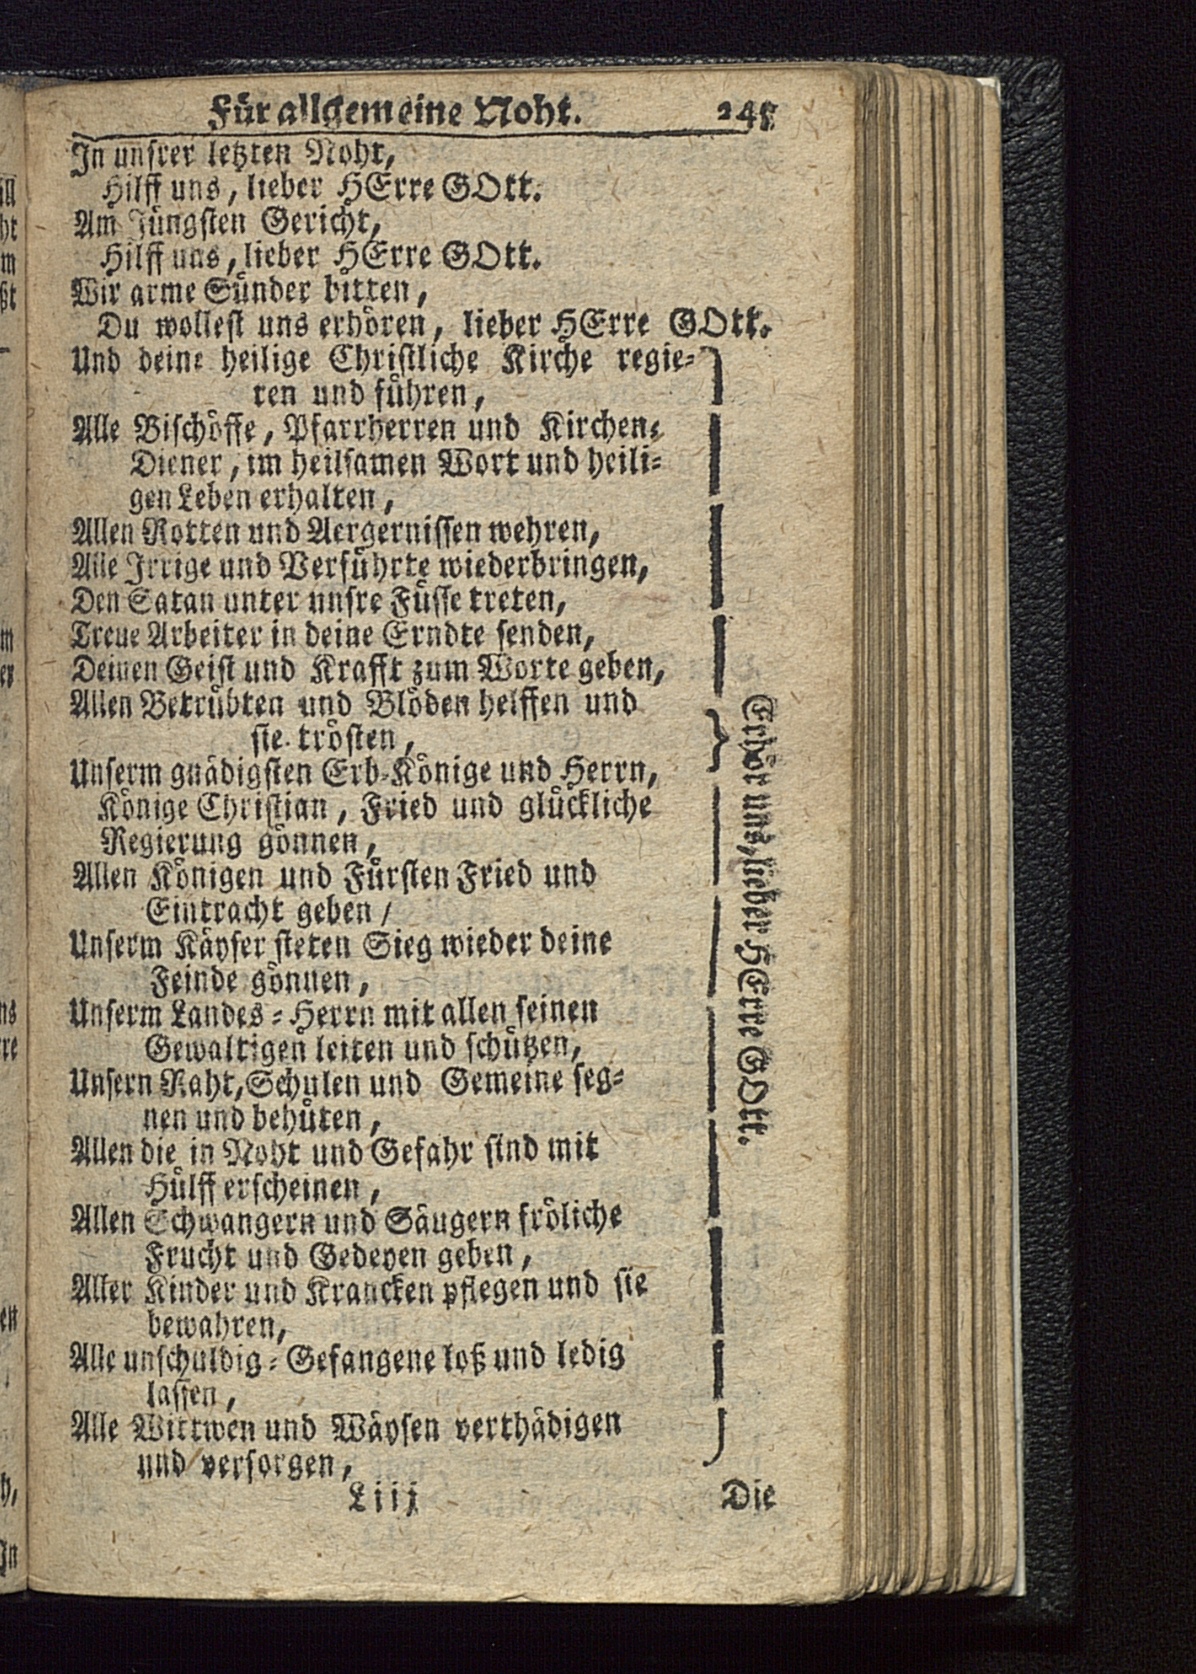 Für allgemeine Noht. 245
In unsrer letzten Noht,
Hilff uns, lieber HErre GOtt.
Am Jüngsten Gericht,
Hilff uns, lieber HErre GOtt.
Wir arme Sünder bitten,
Du wollest uns erhören, lieber HErre GOtt.
Und deine heilige Christliche Kirche regie-
ren und führen,
Alle Bischöffe, Pfarrherren und Kirchen-
Diener, im heilsamen Wort und heili-
gen Leben erhalten,
Allen Rotten und Aergernissen wehren,
Alle Irrige und Verführte wiederbringen,
Den Satan unter unsre Füsse treten,
Treue Arbeiter in deine Erndte senden,
Deinen Geist und Krafft zum Worte geben,
Allen Betrübten und Blöden helffen und
sie trösten,
Unserm gnädigsten Erb-Könige und Herrn,
Könige Christian, Fried und glückliche
Regierung gönnen,
Allen Königen und Fürsten Fried und
Eintracht geben /
Unserm Käyser steten Sieg wieder deine
Feinde gönnen,
Unserm Landes-Herrn mit allen seinen
Gewaltigen leiten und schützen,
Unsern Raht, Schulen und Gemeine seg-
nen und behüten,
Allen die in Noht und Gefahr sind mit
Hülff erscheinen,
Allen Schwangern und Säugern fröliche
Frucht und Gedeyen geben,
Aller Kinder und Krancken pflegen und sie
bewahren,
Alle unschuldig-Gefangene loß und ledig
lassen,
Alle Wittwen und Wäysen verthädigen
und versorgen,
Erhör uns, lieber HErre GOtt.
L iij Die